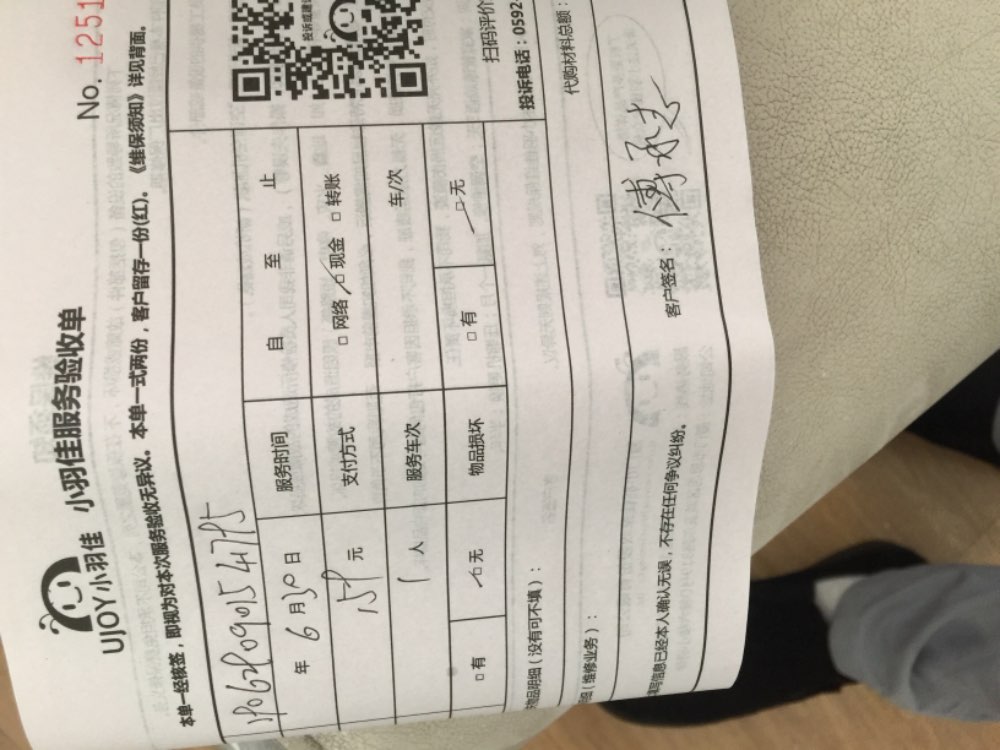 No. 1251
UJOY小羽佳 小羽佳服务验收单
本单一经核签，即视为对本次服务验收无异议。本单一式两份，客户留存一份(红)。《维保须知》详见背面。
年 6 月 30 日 服务时间 自 至 止
159 元 支付方式 □ 网络 □ 现金 □ 转账
1 人 服务车次 车/次
□ 有 □ 无 物品损坏 □ 有 □ 无
扫码评价
投诉电话：0592-
物品明细（没有可不填）：
代购材料总额：
细（维修业务）：
填写信息已经本人确认无误，不存在任何争议纠纷。 客户签名：